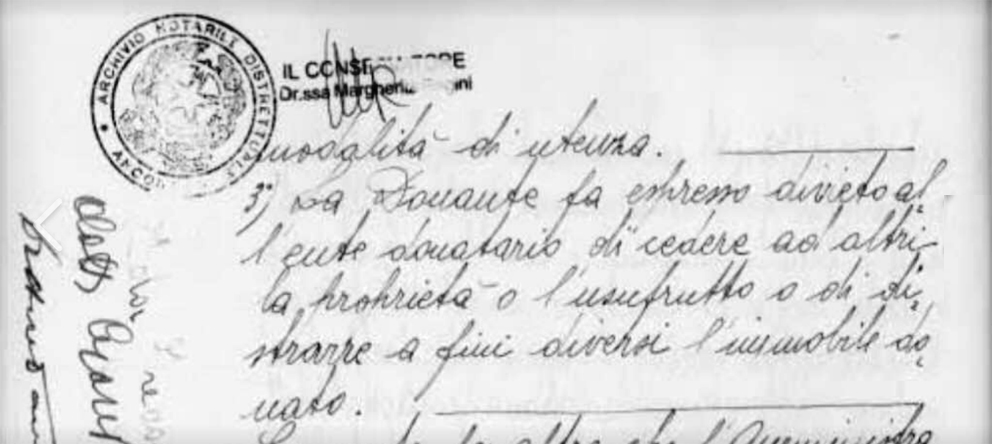 ARCHIVIO NOTARILE DISTRETTUALE
IL CONSERVATORE
Dr.ssa
modalità di utenza.
3°) La Donante fa espresso divieto al-
l'ente donatario di cedere ad altri
la proprietà o l'usufrutto o di di-
strarre a fini diversi l'immobile do-
nato.